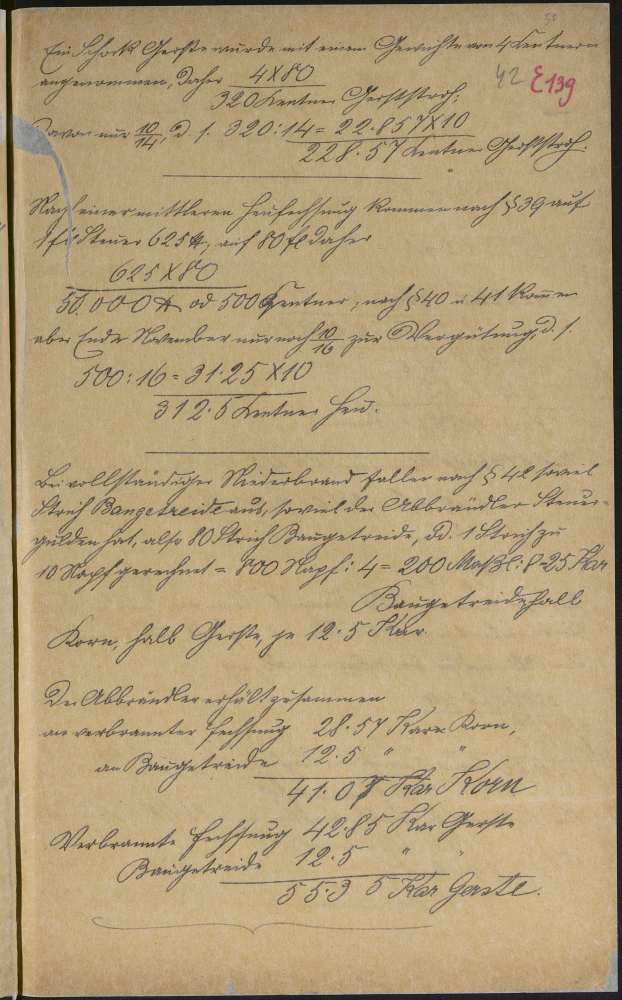 50
Ein Schock Gerste wurde mit einem Gewichte von 4 Centnern
angenommen, daher 4 X 80
42 E 139
320 Centner Gerststroh;
davon nur 10/14, d. s. 320 : 14 = 22·857 X 10
228·57 Centner Gerststroh.
Nach einer mittleren Heufechsung kommen nach § 39 auf
1 fl Steuer 625 ℔, auf 80 fl daher
625 X 80
50.000 ℔ od 500 Centner; nach § 40 u 41 kommen
aber Ende November nur noch 10/16 zur Vergütung, d. s.
500 : 16 = 31·25 X 10
312·5 Centner Heu.
Bei vollständiger Niederbrand fallen nach § 42 soviel
Strich Baugetreide aus, soviel der Abbrändler Steuer-
gulden hat, also 80 Strich Baugetreide, d. 1 Strich zu
10 Napf gerechnet = 800 Napf : 4 = 200 Maßl : 8 = 25 Kar
Baugetreide, halb
Korn, halb Gerste, je 12·5 Kar.
Der Abbrändler erhält zusammen
an verbrannter Fechsung 28·57 Kar Korn,
an Baugetreide 12·5 " "
41·07 Kar Korn
Verbrannte Fechsung 42·85 Kar Gerste
Baugetreide 12·5 " "
55·35 Kar Gerste.